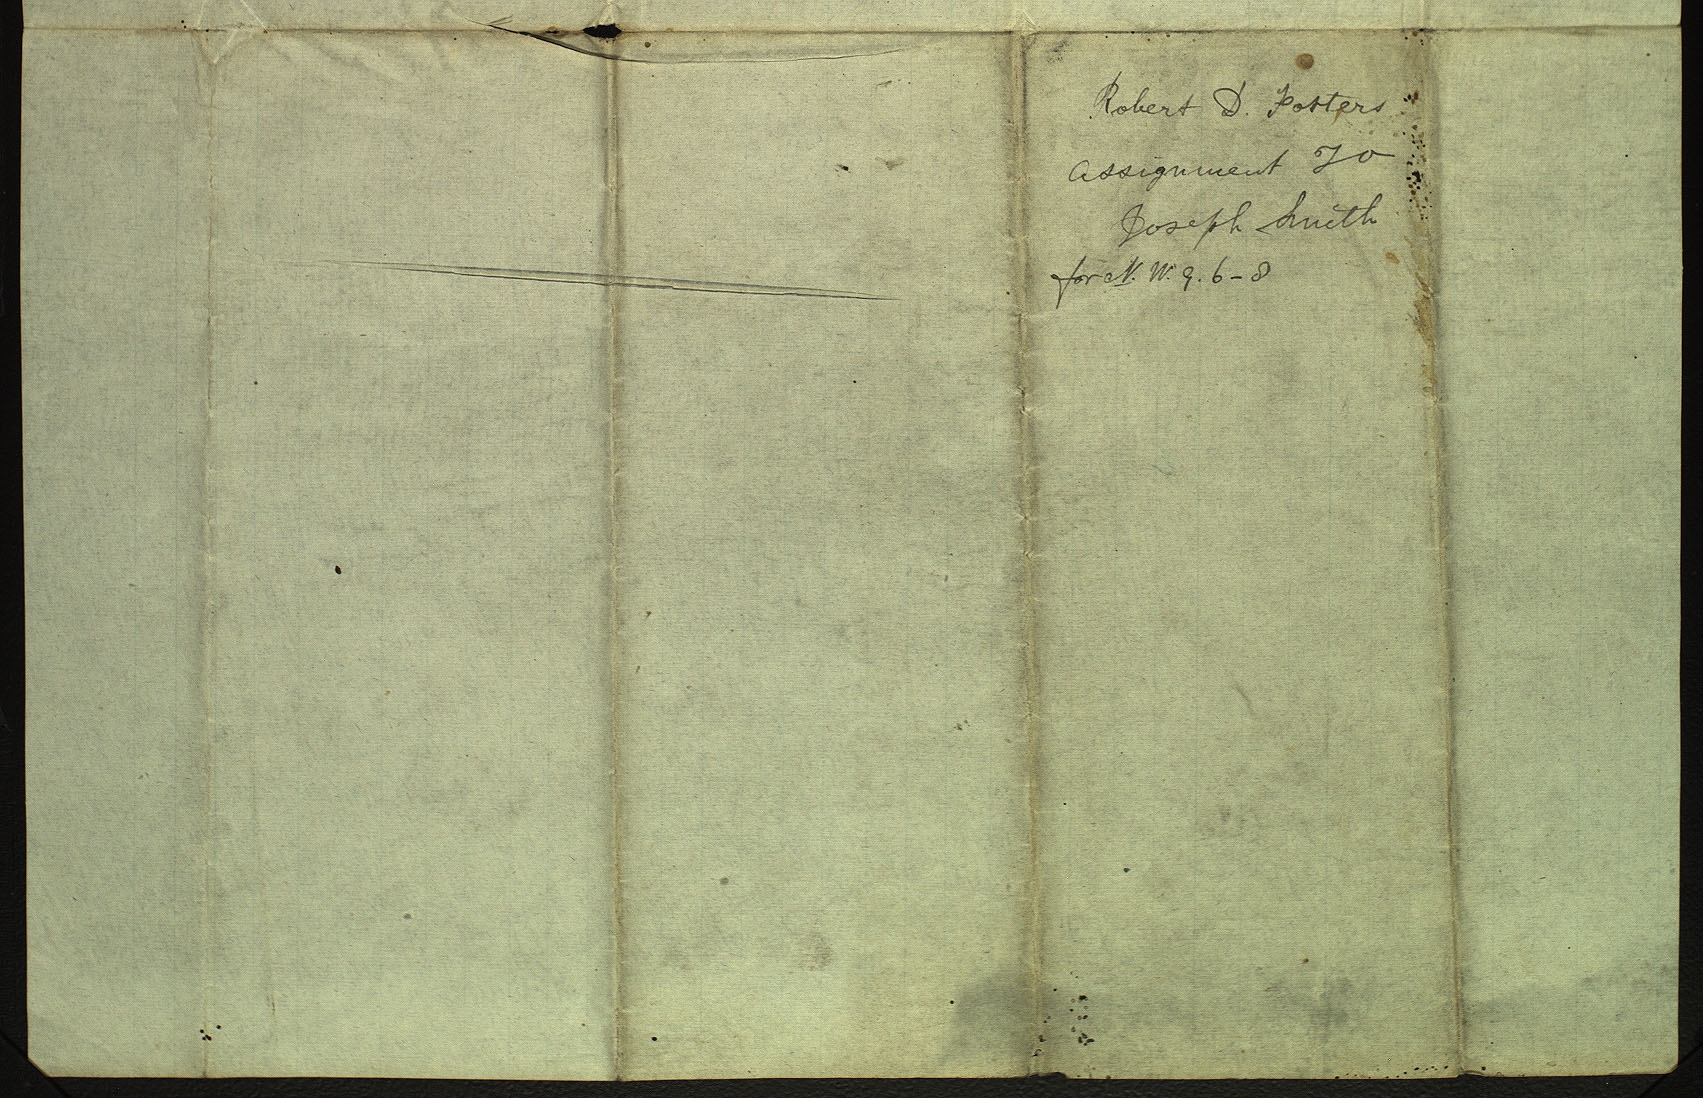 Robert D. Fosters
assignment To
Joseph Smith
for N. W. 9. 6-8